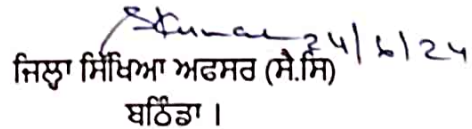 SKumar 24/6/24
ਜਿਲ੍ਹਾ ਸਿੱਖਿਆ ਅਫਸਰ (ਸੈ.ਸਿ)
ਬਠਿੰਡਾ ।